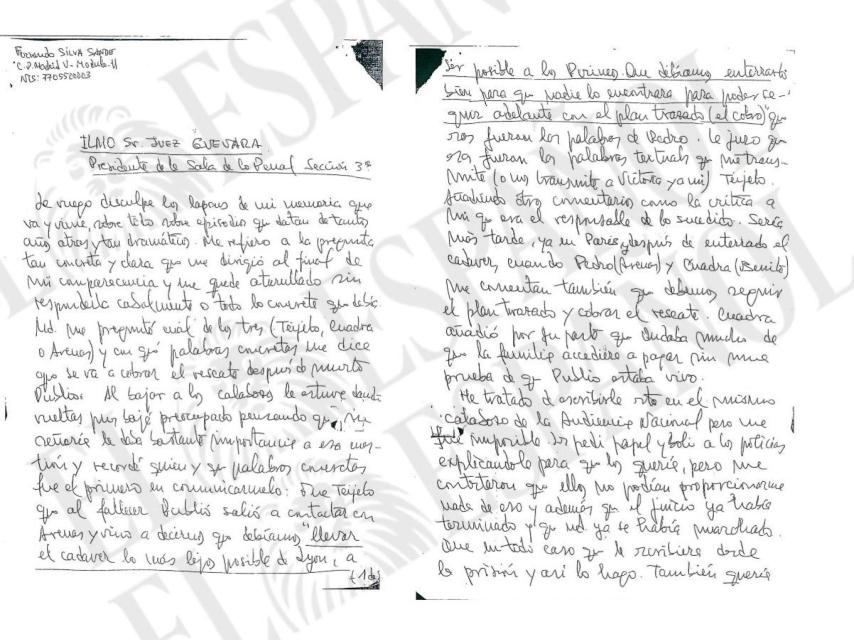 Fernando SILVA SANDE
C.P. Madrid V - Modulo 11
NIS: 7705520003
ILMO Sr. JUEZ GUEVARA
Presidente de la Sala de lo Penal Sección 3ª
Le ruego disculpe los lapsus de mi memoria que
va y viene, sobre todo sobre episodios que datan de tantos
años atras y tan dramáticos. Me refiero a la pregunta
tan concreta y clara que me dirigió al final de
mi comparecencia y me quede aturullado sin
responderla cabalmente o todo lo concreto que debía
Ud. me preguntó cuál de los tres (Teijelo, Cuadra
o Arenas) y con qué palabras concretas me dice
que se va a cobrar el rescate después de muerto
Publio. Al bajar a los calabozos le estuve dando
vueltas pues bajé preocupado pensando que su
señoria le daba bastante importancia a esa cues-
tión y recordé quien y que palabras concretas
fue el primero en comunicarmelo: Fue Teijelo
que al fallecer Publio salió a contactar con
Arenas y vino a decirnos que debíamos "llevar
el cadaver lo más lejos posible de Lyon, a
(1 de)
ser posible a los Pirineos. Que debíamos enterrarlo
bien para que nadie lo encontrara para poder se-
guir adelante con el plan trazado (el cobro)" que
esas fueran las palabras de Pedro. Le juro que
esas fueran las palabras textuales que me trans-
mite (o nos transmite a Victoria y a mi) Teijelo.
Añadiendo otro comentario como la critica a
mi que era el responsable de lo sucedido. Sería
más tarde, ya en Paris y después de enterrado el
cadaver, cuando Pedro (Arenas) y Cuadra (Benito)
me comentan también que debemos seguir
el plan trazado y cobrar el rescate. Cuadra
añadió por su parte que dudaba mucho de
que la familia accediera a pagar sin una
prueba de que Publio estaba vivo.
He tratado de escribirle esto en el mismo
calabozo de la Audiencia Nacional pero me
fue imposible. Les pedí papel y boli a los policias
explicandole para que los quería, pero me
contestaron que ellos no podían proporcionarme
nada de eso y además que el juicio ya había
terminado y que ud. ya se había marchado.
Que en todo caso que le escribiera desde
la prisión y así lo hago. También quería
EL ESPAÑOL